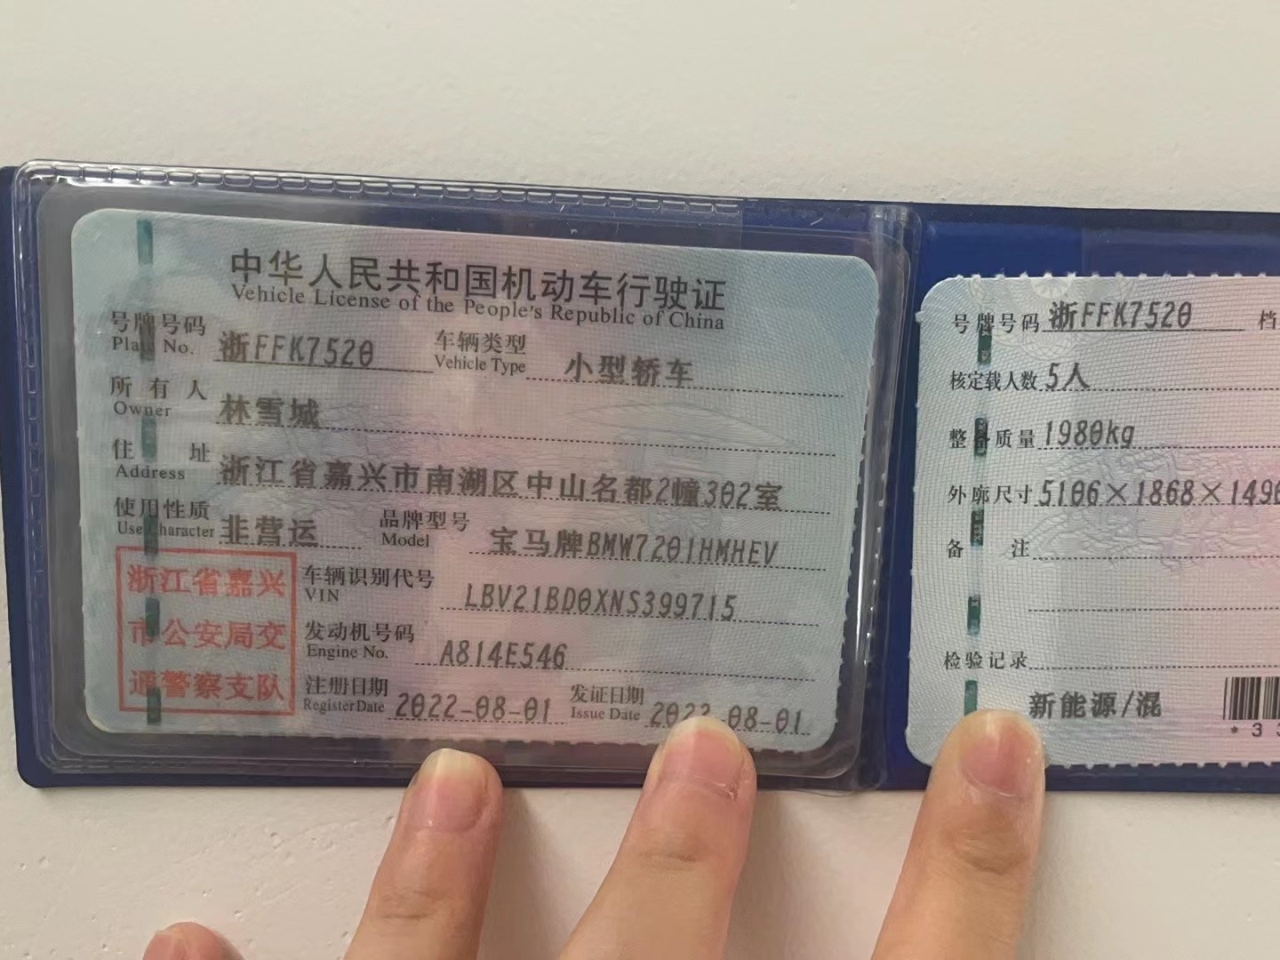 中华人民共和国机动车行驶证
Vehicle License of the People's Republic of China
号牌号码 浙FFK7520 车辆类型 小型轿车
Plate No. Vehicle Type
所有人 林雪城
Owner
住址 浙江省嘉兴市南湖区中山名都2幢302室
Address
使用性质 非营运 品牌型号 宝马牌BMW7201HMHEV
Use Character Model
浙江省嘉兴
市公安局交
通警察支队
车辆识别代号 LBV21BD0XNS399715
VIN
发动机号码 A814E546
Engine No.
注册日期 2022-08-01 发证日期 2022-08-01
Register Date Issue Date
号牌号码 浙FFK7520 档
核定载人数 5人
整备质量 1980kg
外廓尺寸 5106×1868×1490
备注
检验记录
新能源/混
*33